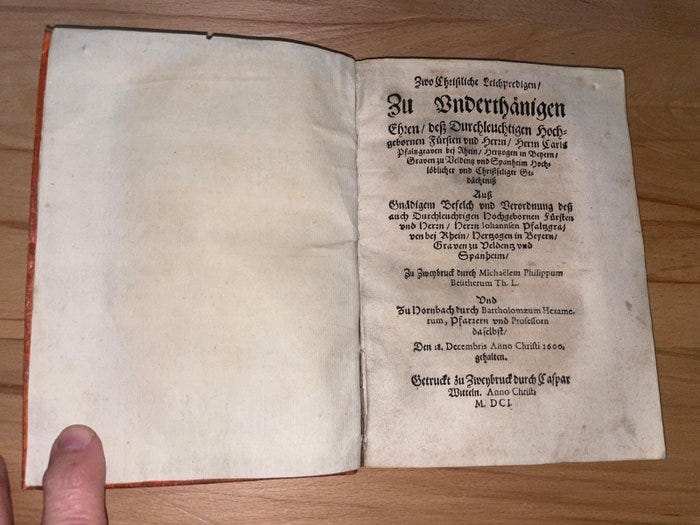 Zwo Christliche Leichpredigen/
Zu Vnderthänigen
Ehren/ deß Durchleuchtigen Hoch-
gebornen Fürsten vnd Herrn/ Herrn Carls
Pfaltzgraven bej Rhein/ Hertzogen in Beyern/
Graven zu Veldentz vnd Spanheim Hoch-
löblicher vnd Christseliger Ge-
dächtniß
Auß
Gnädigem Befelch vnd Verordnung deß
auch Durchleuchtigen Hochgebornen Fürsten
vnd Herrn/ Herrn Johannsen Pfaltzgra-
ven bej Rhein/ Hertzogen in Beyern/
Graven zu Veldentz vnd
Spanheim/
Zu Zweybruck durch Michaëlem Philippum
Beütherum Th. L.
Vnd
Zu Hornbach durch Bartholomæum Hexame-
rum, Pfarrern vnd Professorn
daselbst/
Den 18. Decembris Anno Christi 1600.
gehalten.
Getruckt zu Zweybruck durch Caspar
Witteln. Anno Christi
M. DCI.